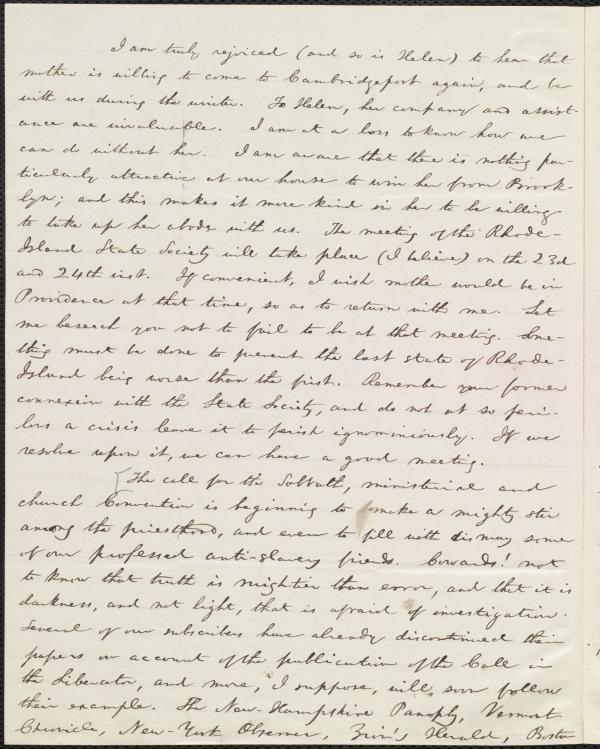 I am truly rejoiced (and so is Helen) to hear that
mother is willing to come to Cambridgeport again, and be
with us during the winter. To Helen, her company and assist-
ance are invaluable. I am at a loss to know how we
can do without her. I am aware that there is nothing par-
ticularly attractive at our house to win her from Brook-
lyn; and this makes it more kind in her to be willing
to take up her abode with us. The meeting of the Rhode-
Island State Society will take place (I believe) on the 23d
and 24th inst. If convenient, I wish mother would be in
Providence at that time, so as to return with me. Let
me beseech you not to fail to be at that meeting. Some-
thing must be done to prevent the last state of Rhode-
Island being worse than the first. Remember your former
connexion with the State Society, and do not at so peri-
lous a crisis leave it to perish ignominiously. If we
resolve upon it, we can have a good meeting.
[The call for the Sabbath, ministerial and
church Convention is beginning to make a mighty stir
among the priesthood, and even to fill with dismay some
of our professed anti-slavery friends. Cowards! not
to know that truth is mightier than error, and that it is
darkness, and not light, that is afraid of investigation.
Several of our subscribers have already discontinued their
papers on account of the publication of the Call in
the Liberator, and more, I suppose, will soon follow
their example. The New-Hampshire Panoply, Vermont
Chronicle, New-York Observer, Zion's Herald, Boston